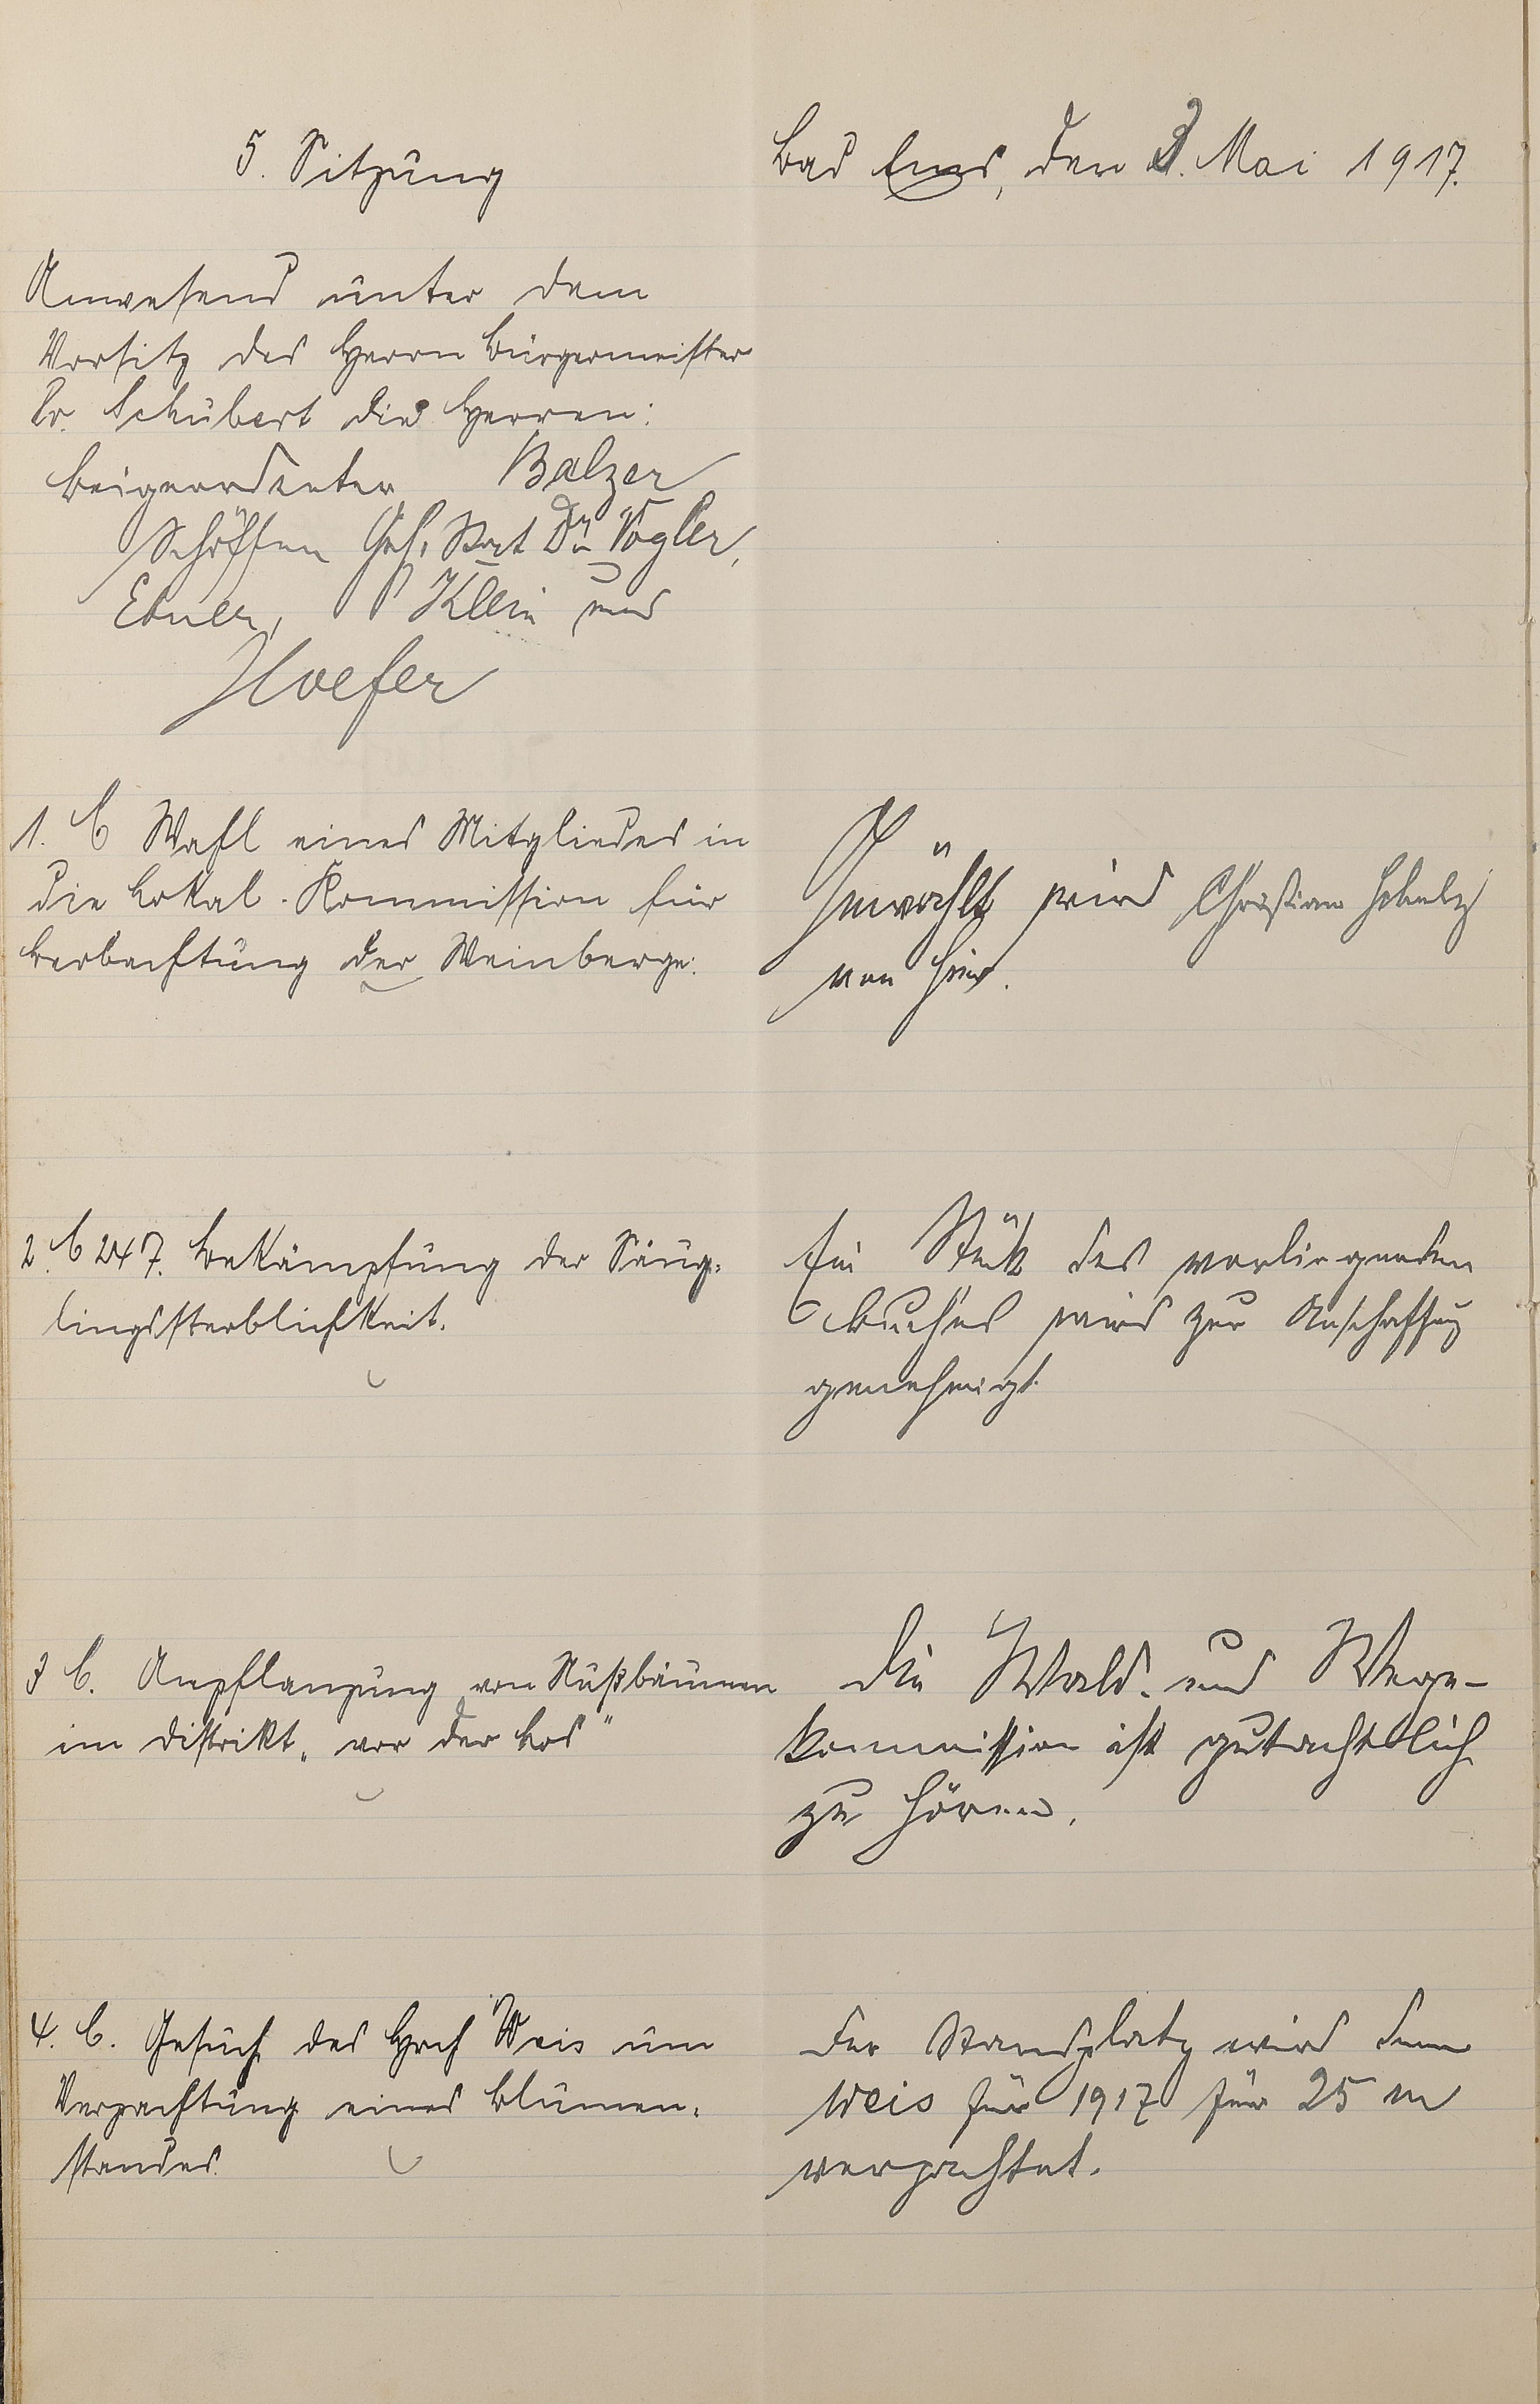 5. Sitzung
Bad Ems, den 3. Mai 1917.
Anwesend unter dem
Vorsitz des Herrn Bürgermeister
Dr. Schubert die Herren:
Beigeordneter Balzer
Schöffen Geh. Rat Dr. Vogler,
Ebner, Klein und
Hoefer
1. C Wahl eines Mitgliedes in
die Lokal-Kommission für
Beobachtung der Weinberge.
Gewählt wird Christian
von hier.
2. C 247. Bekämpfung der Säug-
lingssterblichkeit.
Ein Stück des vorliegenden
Buches wird zur Anschaffung
genehmigt.
3 C. Anpflanzung von Nußbäumen
im Distrikt „vor der Los"
Die Wald- und Wege-
kommission ist gutachtlich
zu hören.
4. C. Gesuch des Hrch Weis um
Verpachtung eines Blumen-
standes.
Der Standplatz wird dem
Weis für 1917 für 25 M
verpachtet.